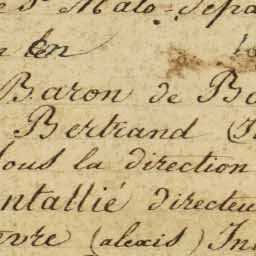 St Malo
en
Baron de Bo
Bertrand (I
sous la direction
ntallié directeu
vre (alexis) In